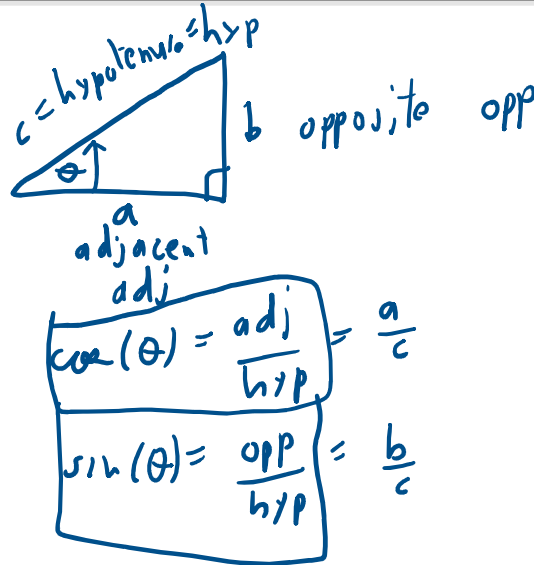 c = hypotenuse = hyp
b opposite opp
θ
a
adjacent
adj
cos(θ) = adj/hyp = a/c
sin(θ) = opp/hyp = b/c